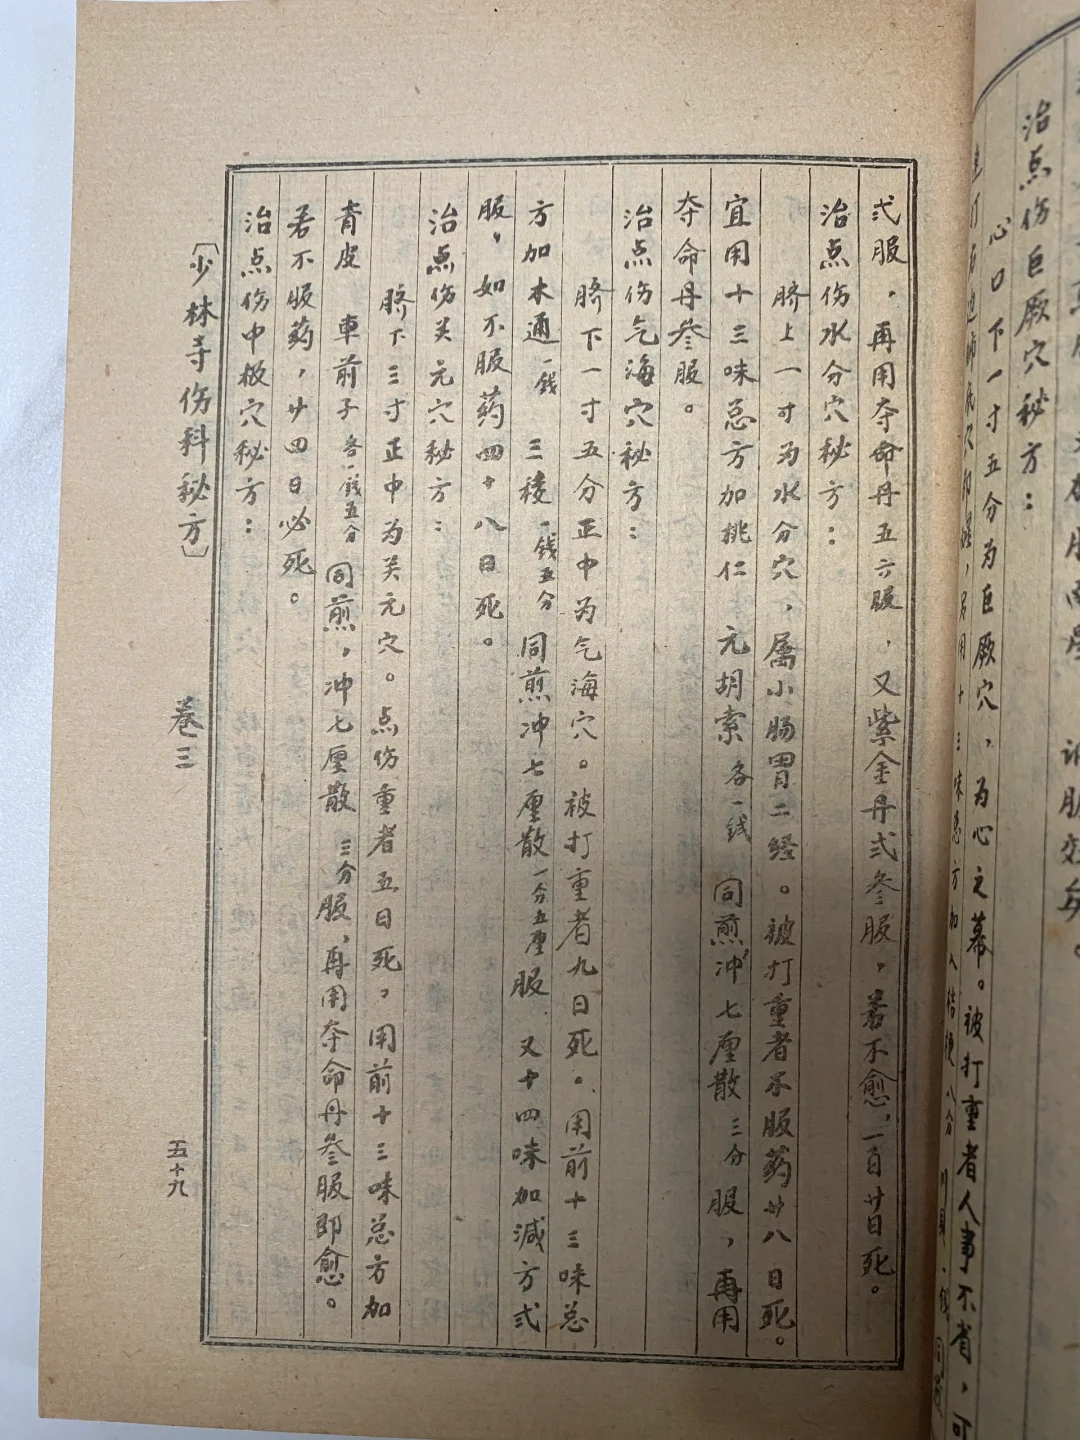 治点伤巨厥穴秘方：
心口下一寸五分为巨厥穴，为心之幕。被打重者人事不省，可
弍服，再用夺命丹五六服，又紫金丹弍叁服，若不愈，一百廿日死。
治点伤水分穴秘方：
脐上一寸为水分穴，属小肠胃二经。被打重者不服药廿八日死。
宜用十三味总方加桃仁 元胡索各一钱 同煎冲七厘散三分服，再用
夺命丹叁服。
治点伤气海穴秘方：
脐下一寸五分正中为气海穴。被打重者九日死。用前十三味总
方加木通一钱 三稜一钱五分 同煎冲七厘散一分五厘服 又十四味加减方弍
服，如不服药四十八日死。
治点伤关元穴秘方：
脐下三寸正中为关元穴。点伤重者五日死，用前十三味总方加
青皮 車前子各一钱五分 同煎，冲七厘散三分服，再用夺命丹叁服即愈。
若不服药，廿四日必死。
治点伤中极穴秘方：
〔少林寺伤科秘方〕 卷三 五十九